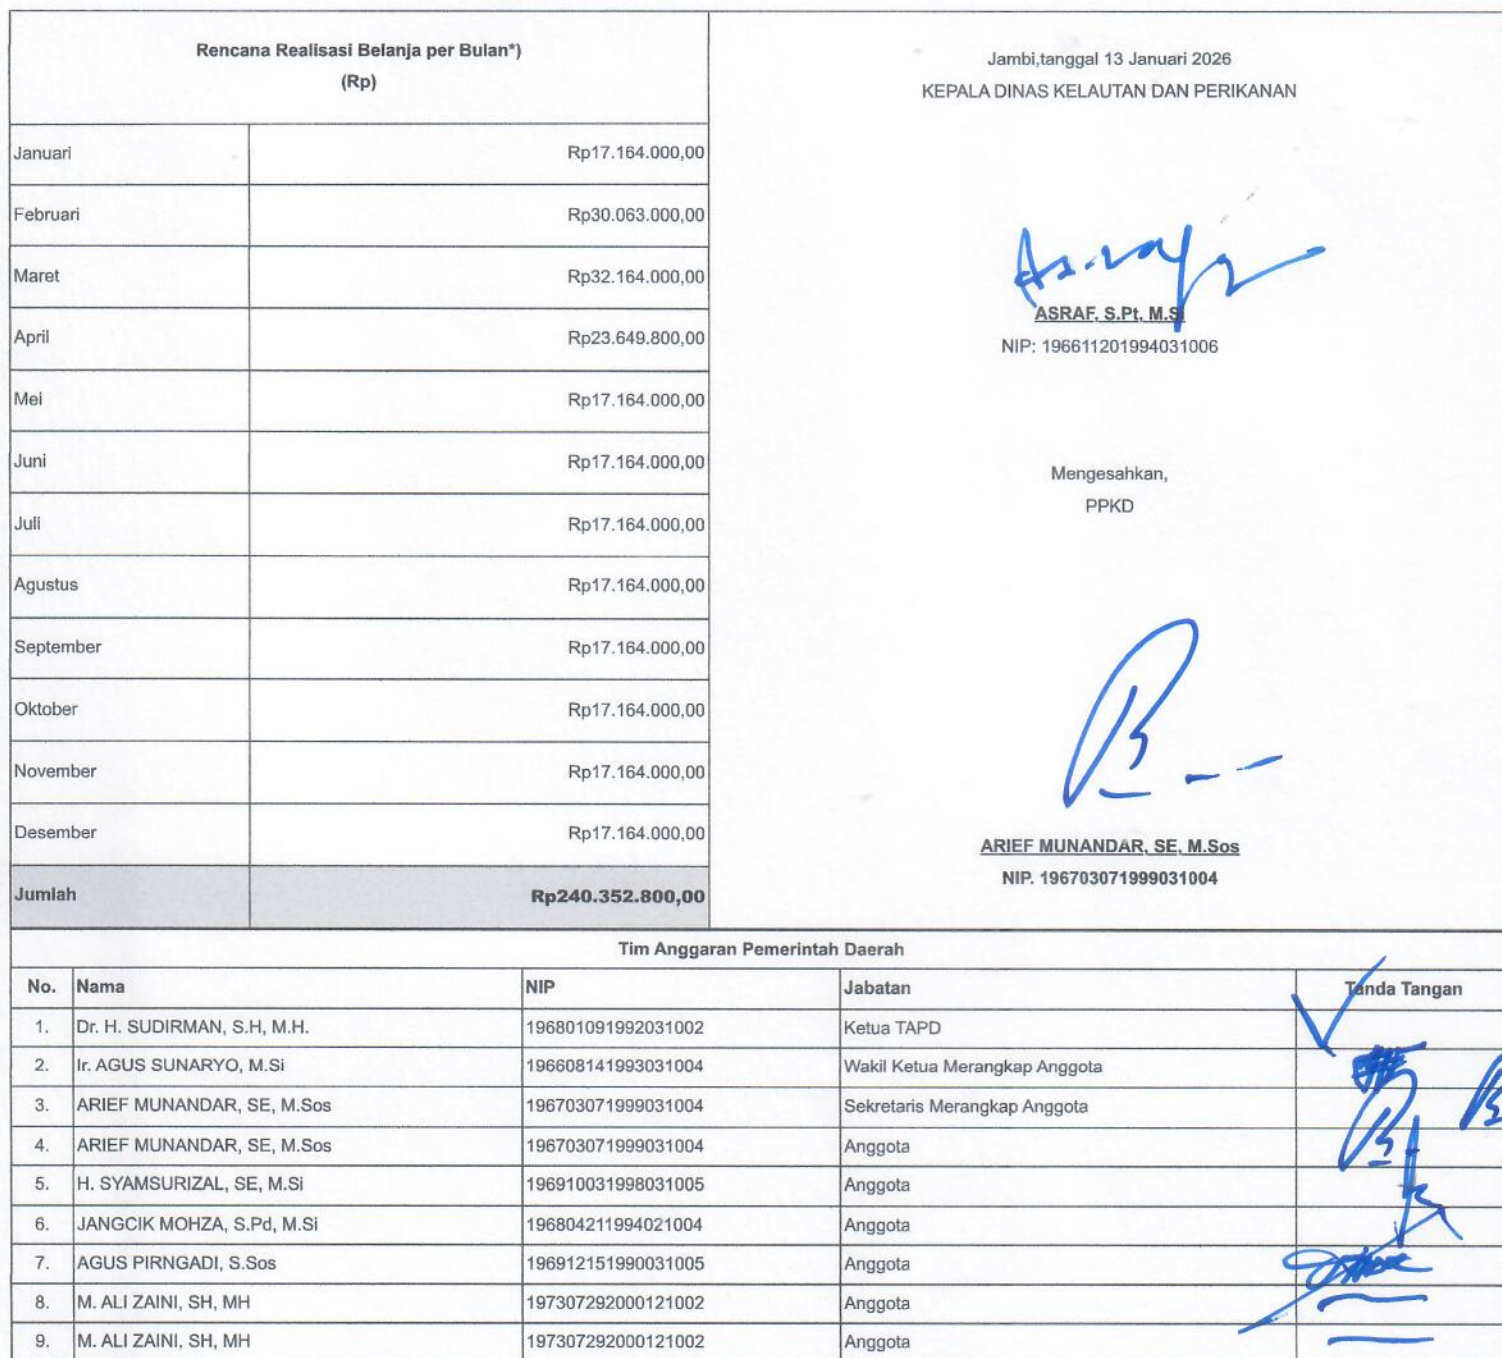 Rencana Realisasi Belanja per Bulan*)
(Rp)
Januari Rp17.164.000,00
Februari Rp30.063.000,00
Maret Rp32.164.000,00
April Rp23.649.800,00
Mei Rp17.164.000,00
Juni Rp17.164.000,00
Juli Rp17.164.000,00
Agustus Rp17.164.000,00
September Rp17.164.000,00
Oktober Rp17.164.000,00
November Rp17.164.000,00
Desember Rp17.164.000,00
Jumlah Rp240.352.800,00
Jambi,tanggal 13 Januari 2026
KEPALA DINAS KELAUTAN DAN PERIKANAN
Asraf
ASRAF, S.Pt, M.Si
NIP: 196611201994031006
Mengesahkan,
PPKD
ARIEF MUNANDAR, SE, M.Sos
NIP. 196703071999031004
Tim Anggaran Pemerintah Daerah
No. Nama NIP Jabatan Tanda Tangan
1. Dr. H. SUDIRMAN, S.H, M.H. 196801091992031002 Ketua TAPD
2. Ir. AGUS SUNARYO, M.Si 196608141993031004 Wakil Ketua Merangkap Anggota
3. ARIEF MUNANDAR, SE, M.Sos 196703071999031004 Sekretaris Merangkap Anggota
4. ARIEF MUNANDAR, SE, M.Sos 196703071999031004 Anggota
5. H. SYAMSURIZAL, SE, M.Si 196910031998031005 Anggota
6. JANGCIK MOHZA, S.Pd, M.Si 196804211994021004 Anggota
7. AGUS PIRNGADI, S.Sos 196912151990031005 Anggota
8. M. ALI ZAINI, SH, MH 197307292000121002 Anggota
9. M. ALI ZAINI, SH, MH 197307292000121002 Anggota